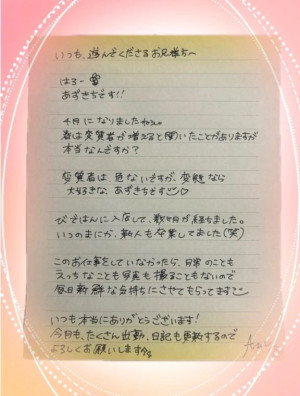 いつも、遊んでくださるお兄様方へ
はろー
あずきちです!!
4月になりましたねぇ。
春は変質者が増えると聞いたことがありますが
本当なんですか?
変質者は危ないですが、変態なら
大好きな、あずきちです♡
に入店して、数ヶ月が経ちました。
いつのまにか、新人も卒業してました(笑)
このお仕事をしていなかったら、日常のことも
えっちなことも写真も撮ることもないので
毎日新鮮な気持ちにさせてもらってます
いつも本当にありがとうございます!
今月も、たくさん出勤、日記も更新するので
よろしくお願いします